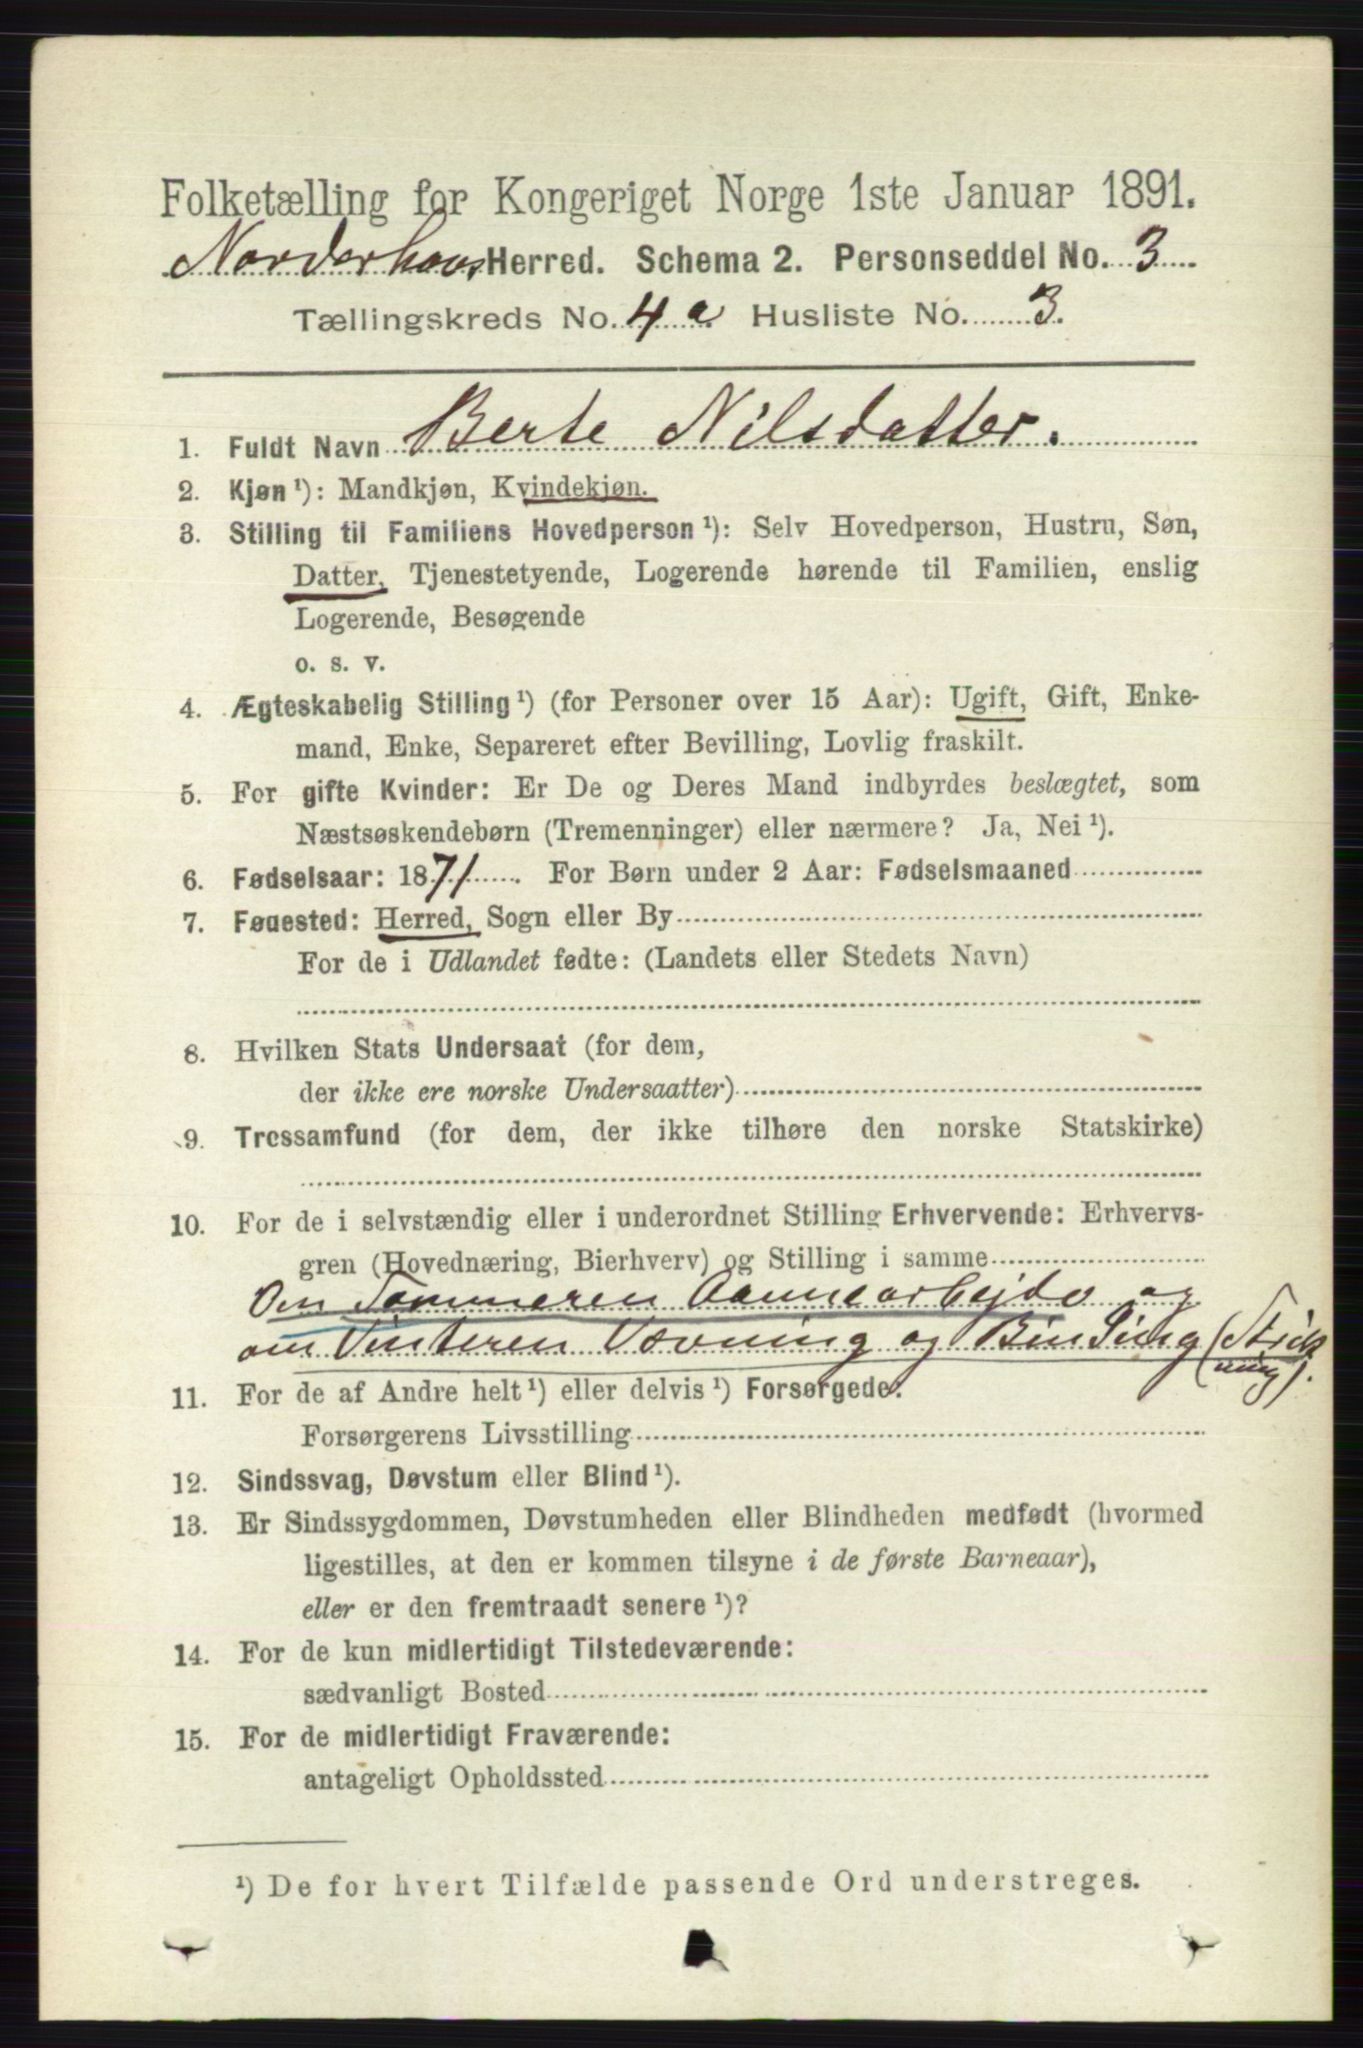 Folketælling for Kongeriget Norge 1ste Januar 1891.
Norderhovs Herred. Schema 2. Personseddel No. 3
Tællingskreds No. 4 a Husliste No. 3.
1. Fuldt Navn Berte Nilsdatter.
2. Kjøn ¹): Mandkjøn, Kvindekjøn.
3. Stilling til Familiens Hovedperson ¹): Selv Hovedperson, Hustru, Søn,
Datter, Tjenestetyende, Logerende hørende til Familien, enslig
Logerende, Besøgende
o. s. v.
4. Ægteskabelig Stilling ¹) (for Personer over 15 Aar): Ugift, Gift, Enke-
mand, Enke, Separeret efter Bevilling, Lovlig fraskilt.
5. For gifte Kvinder: Er De og Deres Mand indbyrdes beslægtet, som
Næstsøskendebørn (Tremenninger) eller nærmere? Ja, Nei ¹).
6. Fødselsaar: 1871. For Børn under 2 Aar: Fødselsmaaned
7. Føuested: Herred, Sogn eller By
For de i Udlandet fødte: (Landets eller Stedets Navn)
8. Hvilken Stats Undersaat (for dem,
der ikke ere norske Undersaatter)
9. Trossamfund (for dem, der ikke tilhøre den norske Statskirke)
10. For de i selvstændig eller i underordnet Stilling Erhvervende: Erhvervs-
gren (Hovednæring, Bierhverv) og Stilling i samme
Om Sommeren Aannearbejde og
om Vinteren Vævning og Binding (Strik
ning).
11. For de af Andre helt ¹) eller delvis ¹) Forsørgede:
Forsørgerens Livsstilling
12. Sindssvag, Døvstum eller Blind ¹).
13. Er Sindssygdommen, Døvstumheden eller Blindheden medfødt (hvormed
ligestilles, at den er kommen tilsyne i de første Barneaar),
eller er den fremtraadt senere ¹)?
14. For de kun midlertidigt Tilstedeværende:
sædvanligt Bosted
15. For de midlertidigt Fraværende:
antageligt Opholdssted
¹) De for hvert Tilfælde passende Ord understreges.